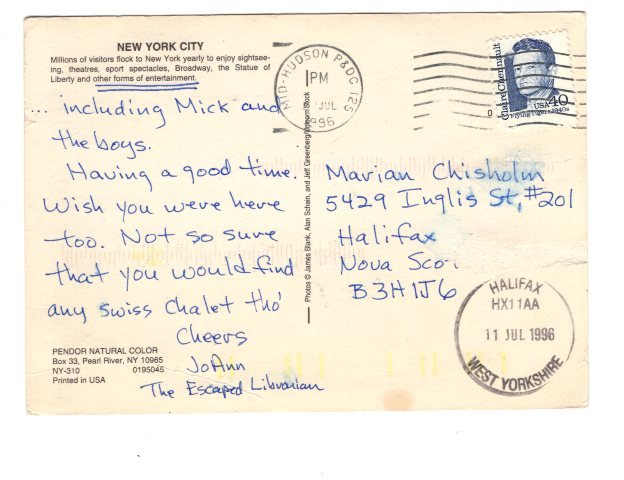 NEW YORK CITY
Millions of visitors flock to New York yearly to enjoy sightsee-
ing, theatres, sport spectacles, Broadway, the Statue of
Liberty and other forms of entertainment.
... including Mick and
the boys.
Having a good time.
Wish you were here
too. Not so sure
that you would find
any swiss chalet tho'
Cheers
JoAnn
The Escaped Librarian
PENDOR NATURAL COLOR
Box 33, Pearl River, NY 10965
NY-310 0195045
Printed in USA
Photos © James Blank, Alan Schein, and Jeff Greenberg/
MID-HUDSON P&DC 125
PM
JUL
1996
Claire Chennault
USA 40
Flying Tigers 1940s
Marian Chisholm
5429 Inglis St, #201
Halifax
Nova Sco
B3H1J6
HALIFAX
HX11AA
11 JUL 1996
WEST YORKSHIRE